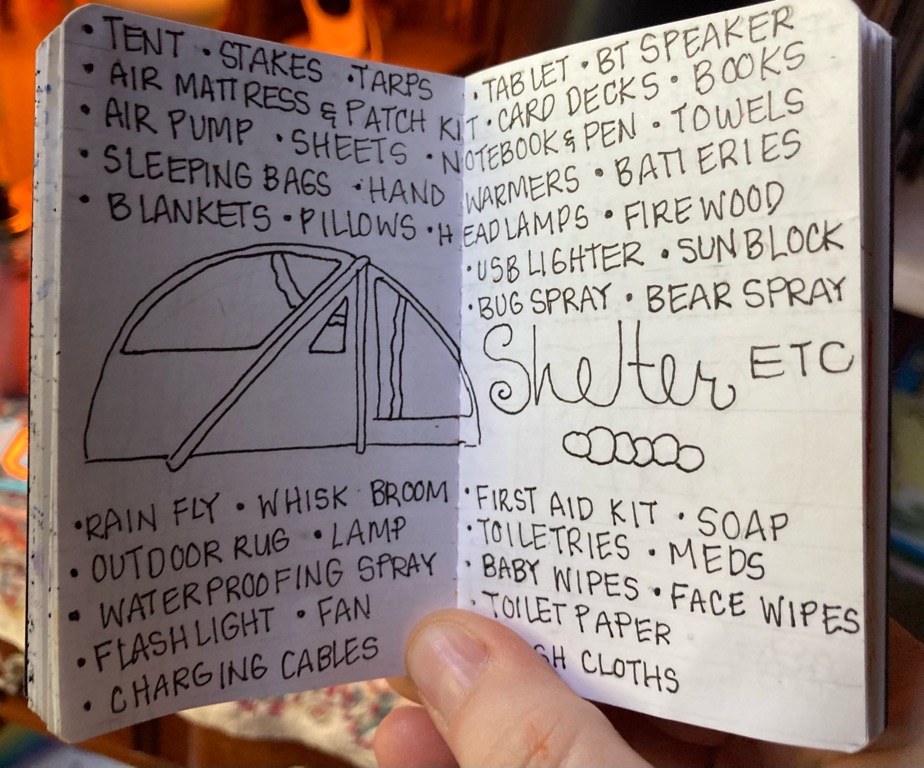 • TENT • STAKES • TARPS
• AIR MATTRESS & PATCH KIT
• AIR PUMP • SHEETS • NOTEBOOK & PEN • TOWELS
• SLEEPING BAGS • HAND WARMERS • BATTERIES
• BLANKETS • PILLOWS • HEADLAMPS • FIREWOOD
• RAIN FLY • WHISK BROOM
• OUTDOOR RUG • LAMP
• WATERPROOFING SPRAY
• FLASHLIGHT • FAN
• CHARGING CABLES
• TABLET • BT SPEAKER
• CARD DECKS • BOOKS
• USB LIGHTER • SUNBLOCK
• BUG SPRAY • BEAR SPRAY
Shelter ETC
• FIRST AID KIT • SOAP
• TOILETRIES • MEDS
• BABY WIPES • FACE WIPES
• TOILET PAPER
SH CLOTHS